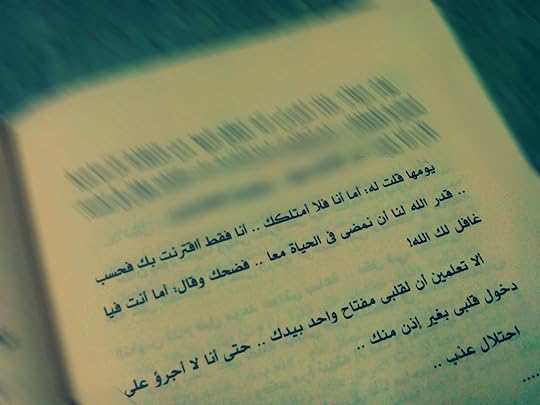 يومها قلت له: أما أنا فلا أمتلكك .. أنا فقط اقترنت بك فحسب
.. قدر الله لنا أن نمضى فى الحياة معا .. فضحك وقال: أما أنت فيا
غافل لك الله!
ألا تعلمين أن لقلبى مفتاح واحد بيدك .. حتى أنا لا أجرؤ على
دخول قلبى بغير إذن منك ..
احتلال عذب ..
....